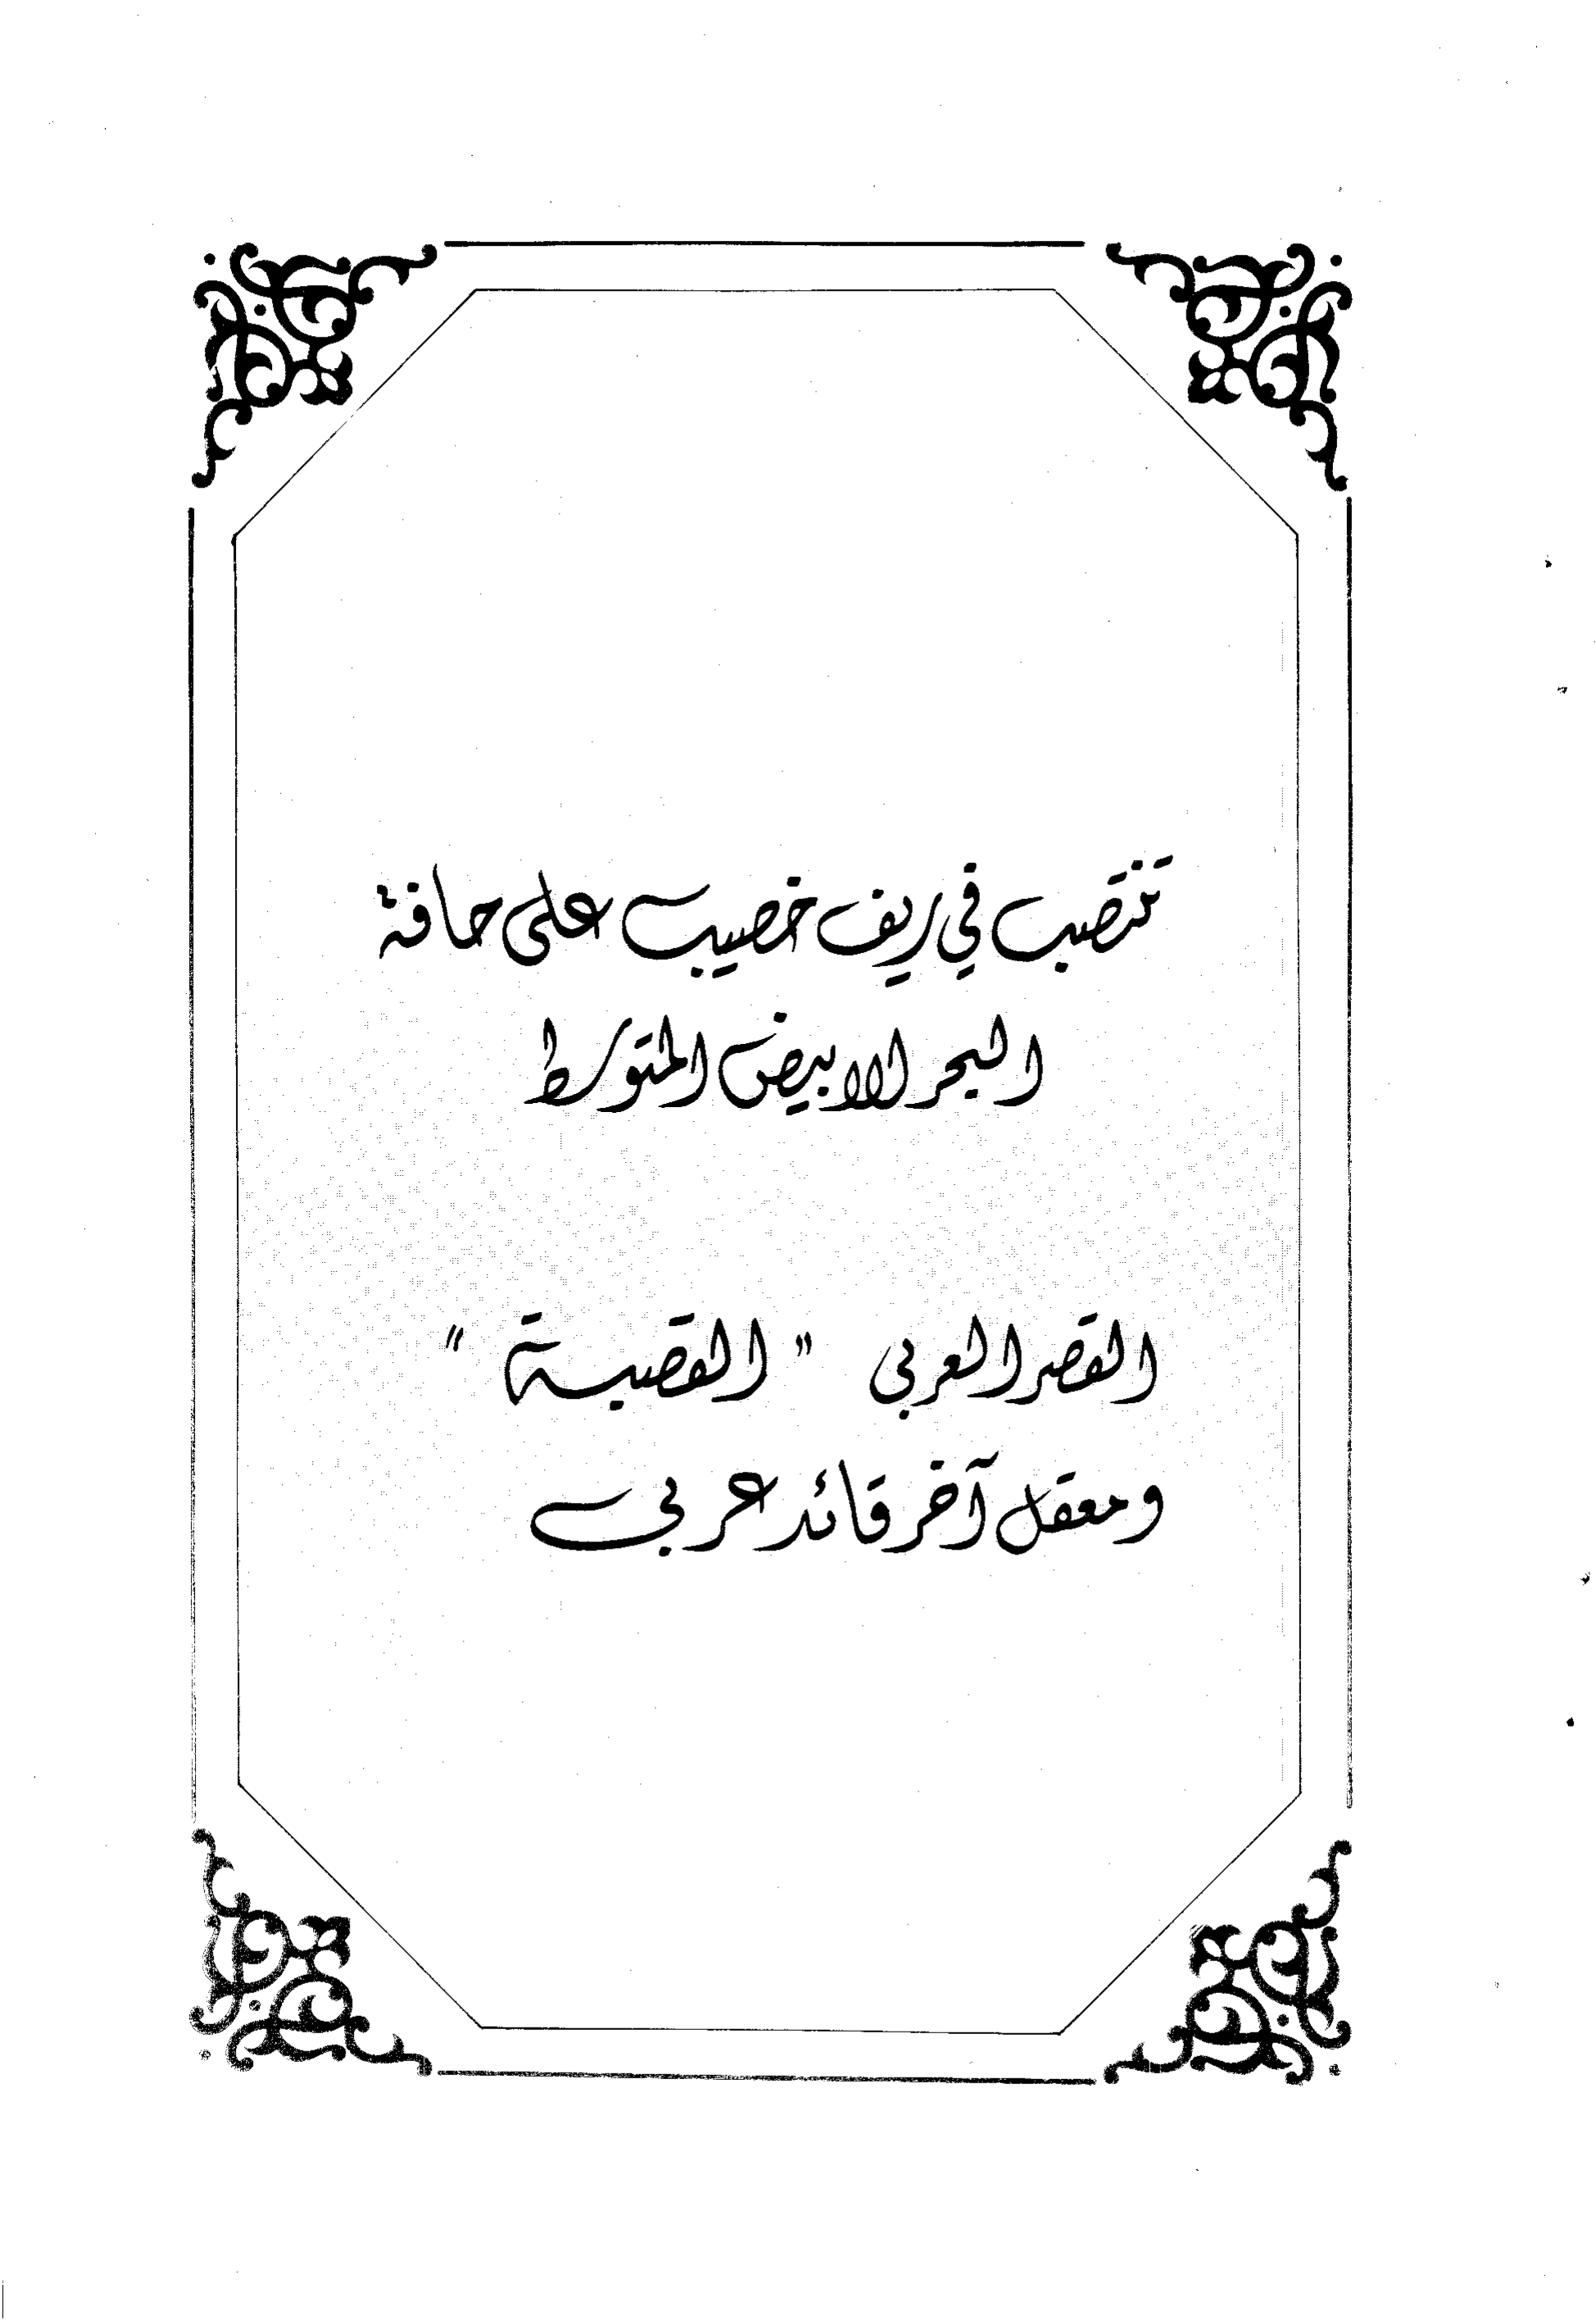 تنتصب في ريف خصيب على حافة
البحر الابيض المتوسط
القصر العربي " القصبة "
ومعقل آخر قائد عربي